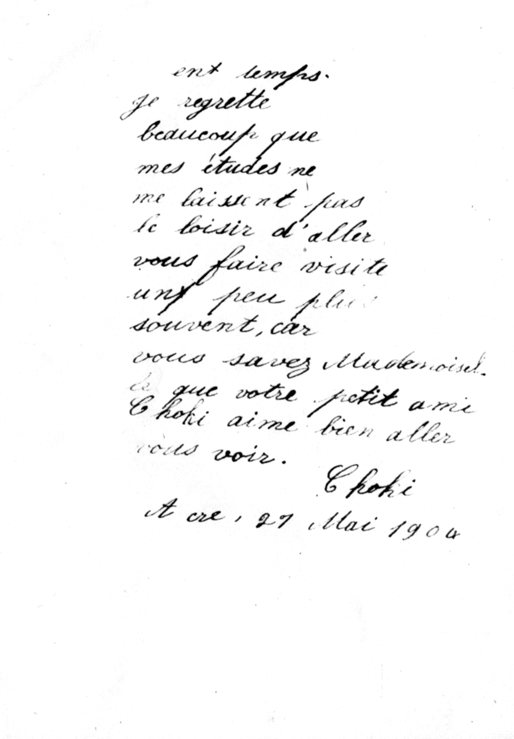 ent temps.
Je regrette
beaucoup que
mes études ne
me laissent pas
le loisir d'aller
vous faire visite
un peu plus
souvent, car
vous savez Mademoisel-
le que votre petit ami
Choki aime bien aller
vous voir.
Choki
Acre, 27 Mai 1904